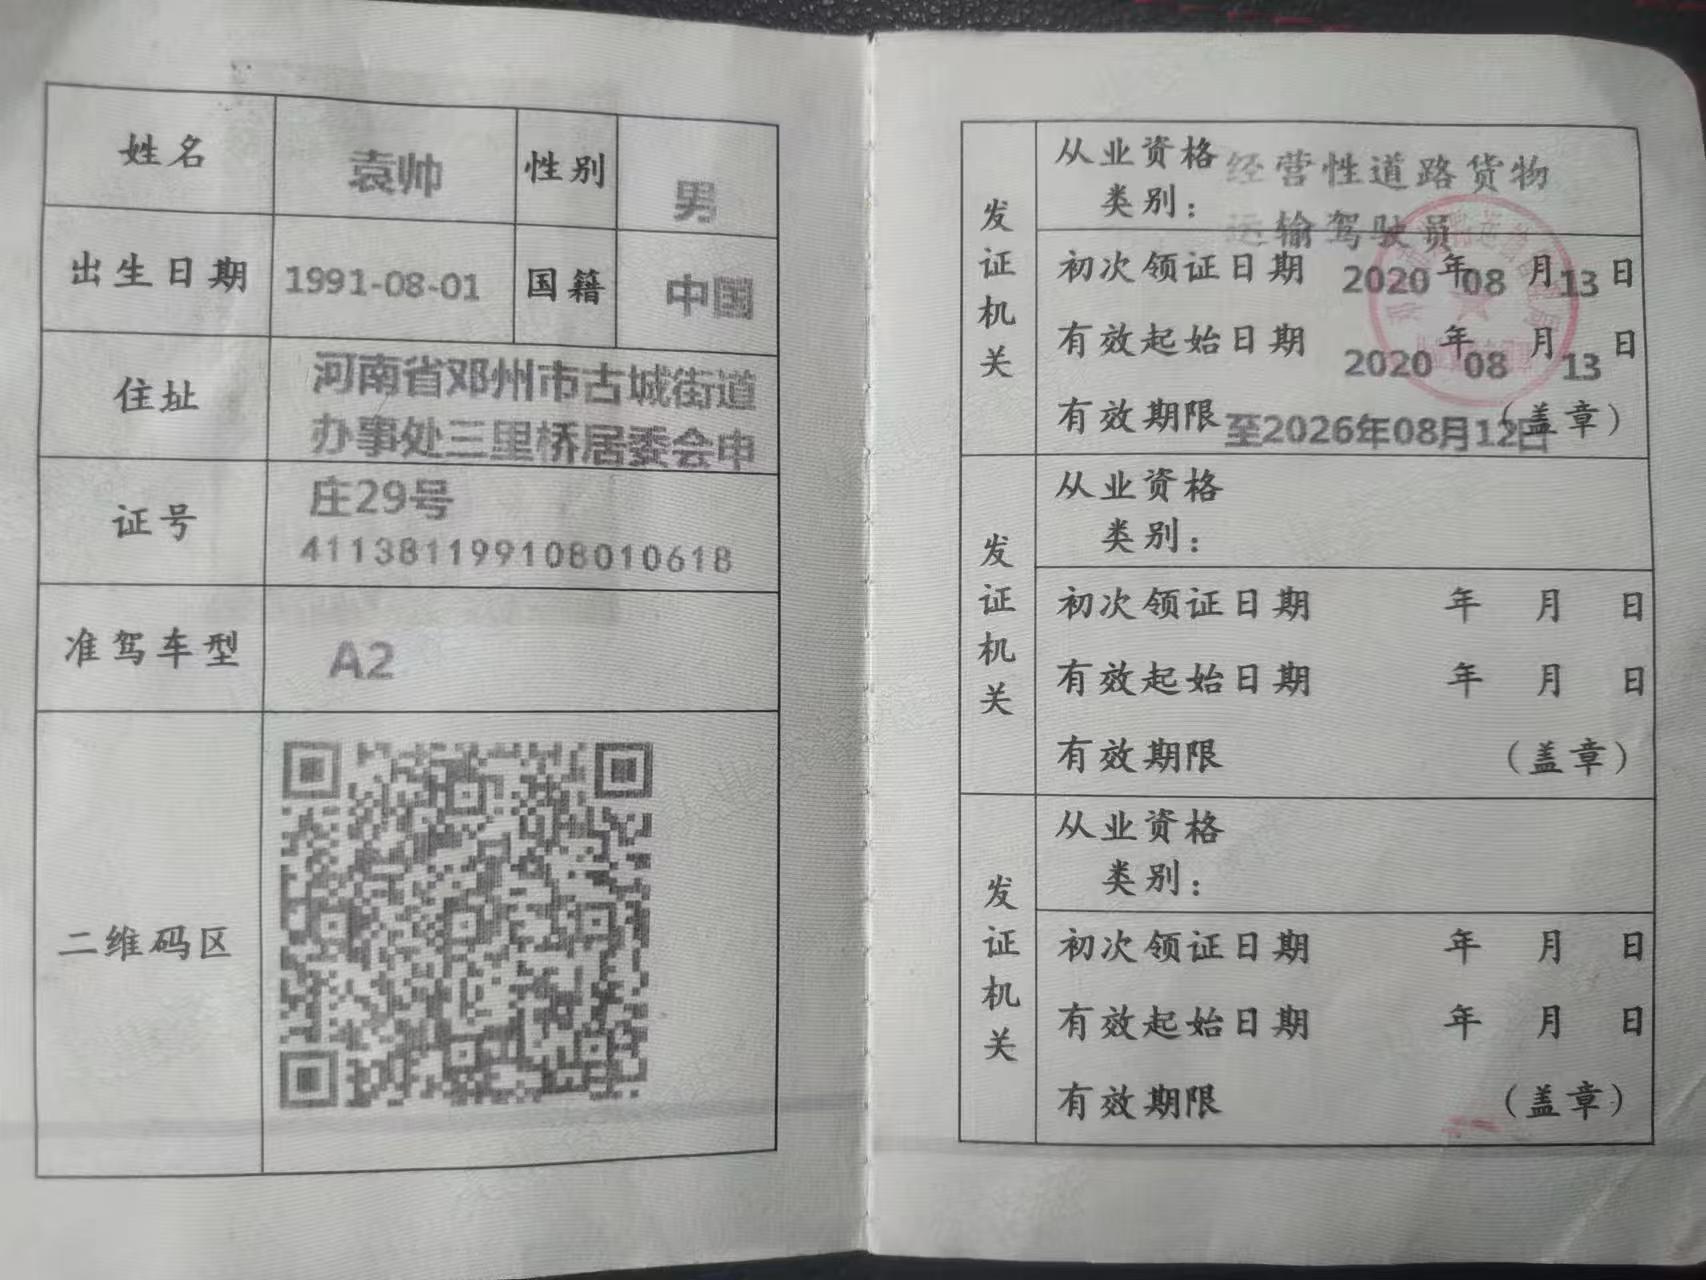 姓名 袁帅 性别 男
出生日期 1991-08-01 国籍 中国
住址 河南省邓州市古城街道
办事处三里桥居委会申
庄29号
证号 411381199108010618
准驾车型 A2
二维码区
发证机关
从业资格 经营性道路货物
类别： 运输驾驶员
初次领证日期 2020年08月13日
有效起始日期 2020年08月13日
有效期限 至2026年08月12日 （盖章）
发证机关
从业资格
类别：
初次领证日期 年 月 日
有效起始日期 年 月 日
有效期限 （盖章）
发证机关
从业资格
类别：
初次领证日期 年 月 日
有效起始日期 年 月 日
有效期限 （盖章）